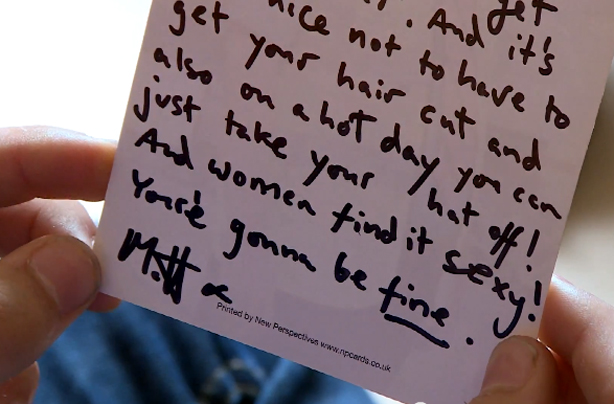 get
nice not to have to
get your hair cut and
also on a hot day you can
just take your hat off!
And women find it sexy!
You're gonna be fine.
Matt x
Printed by New Perspectives www.npcards.co.uk